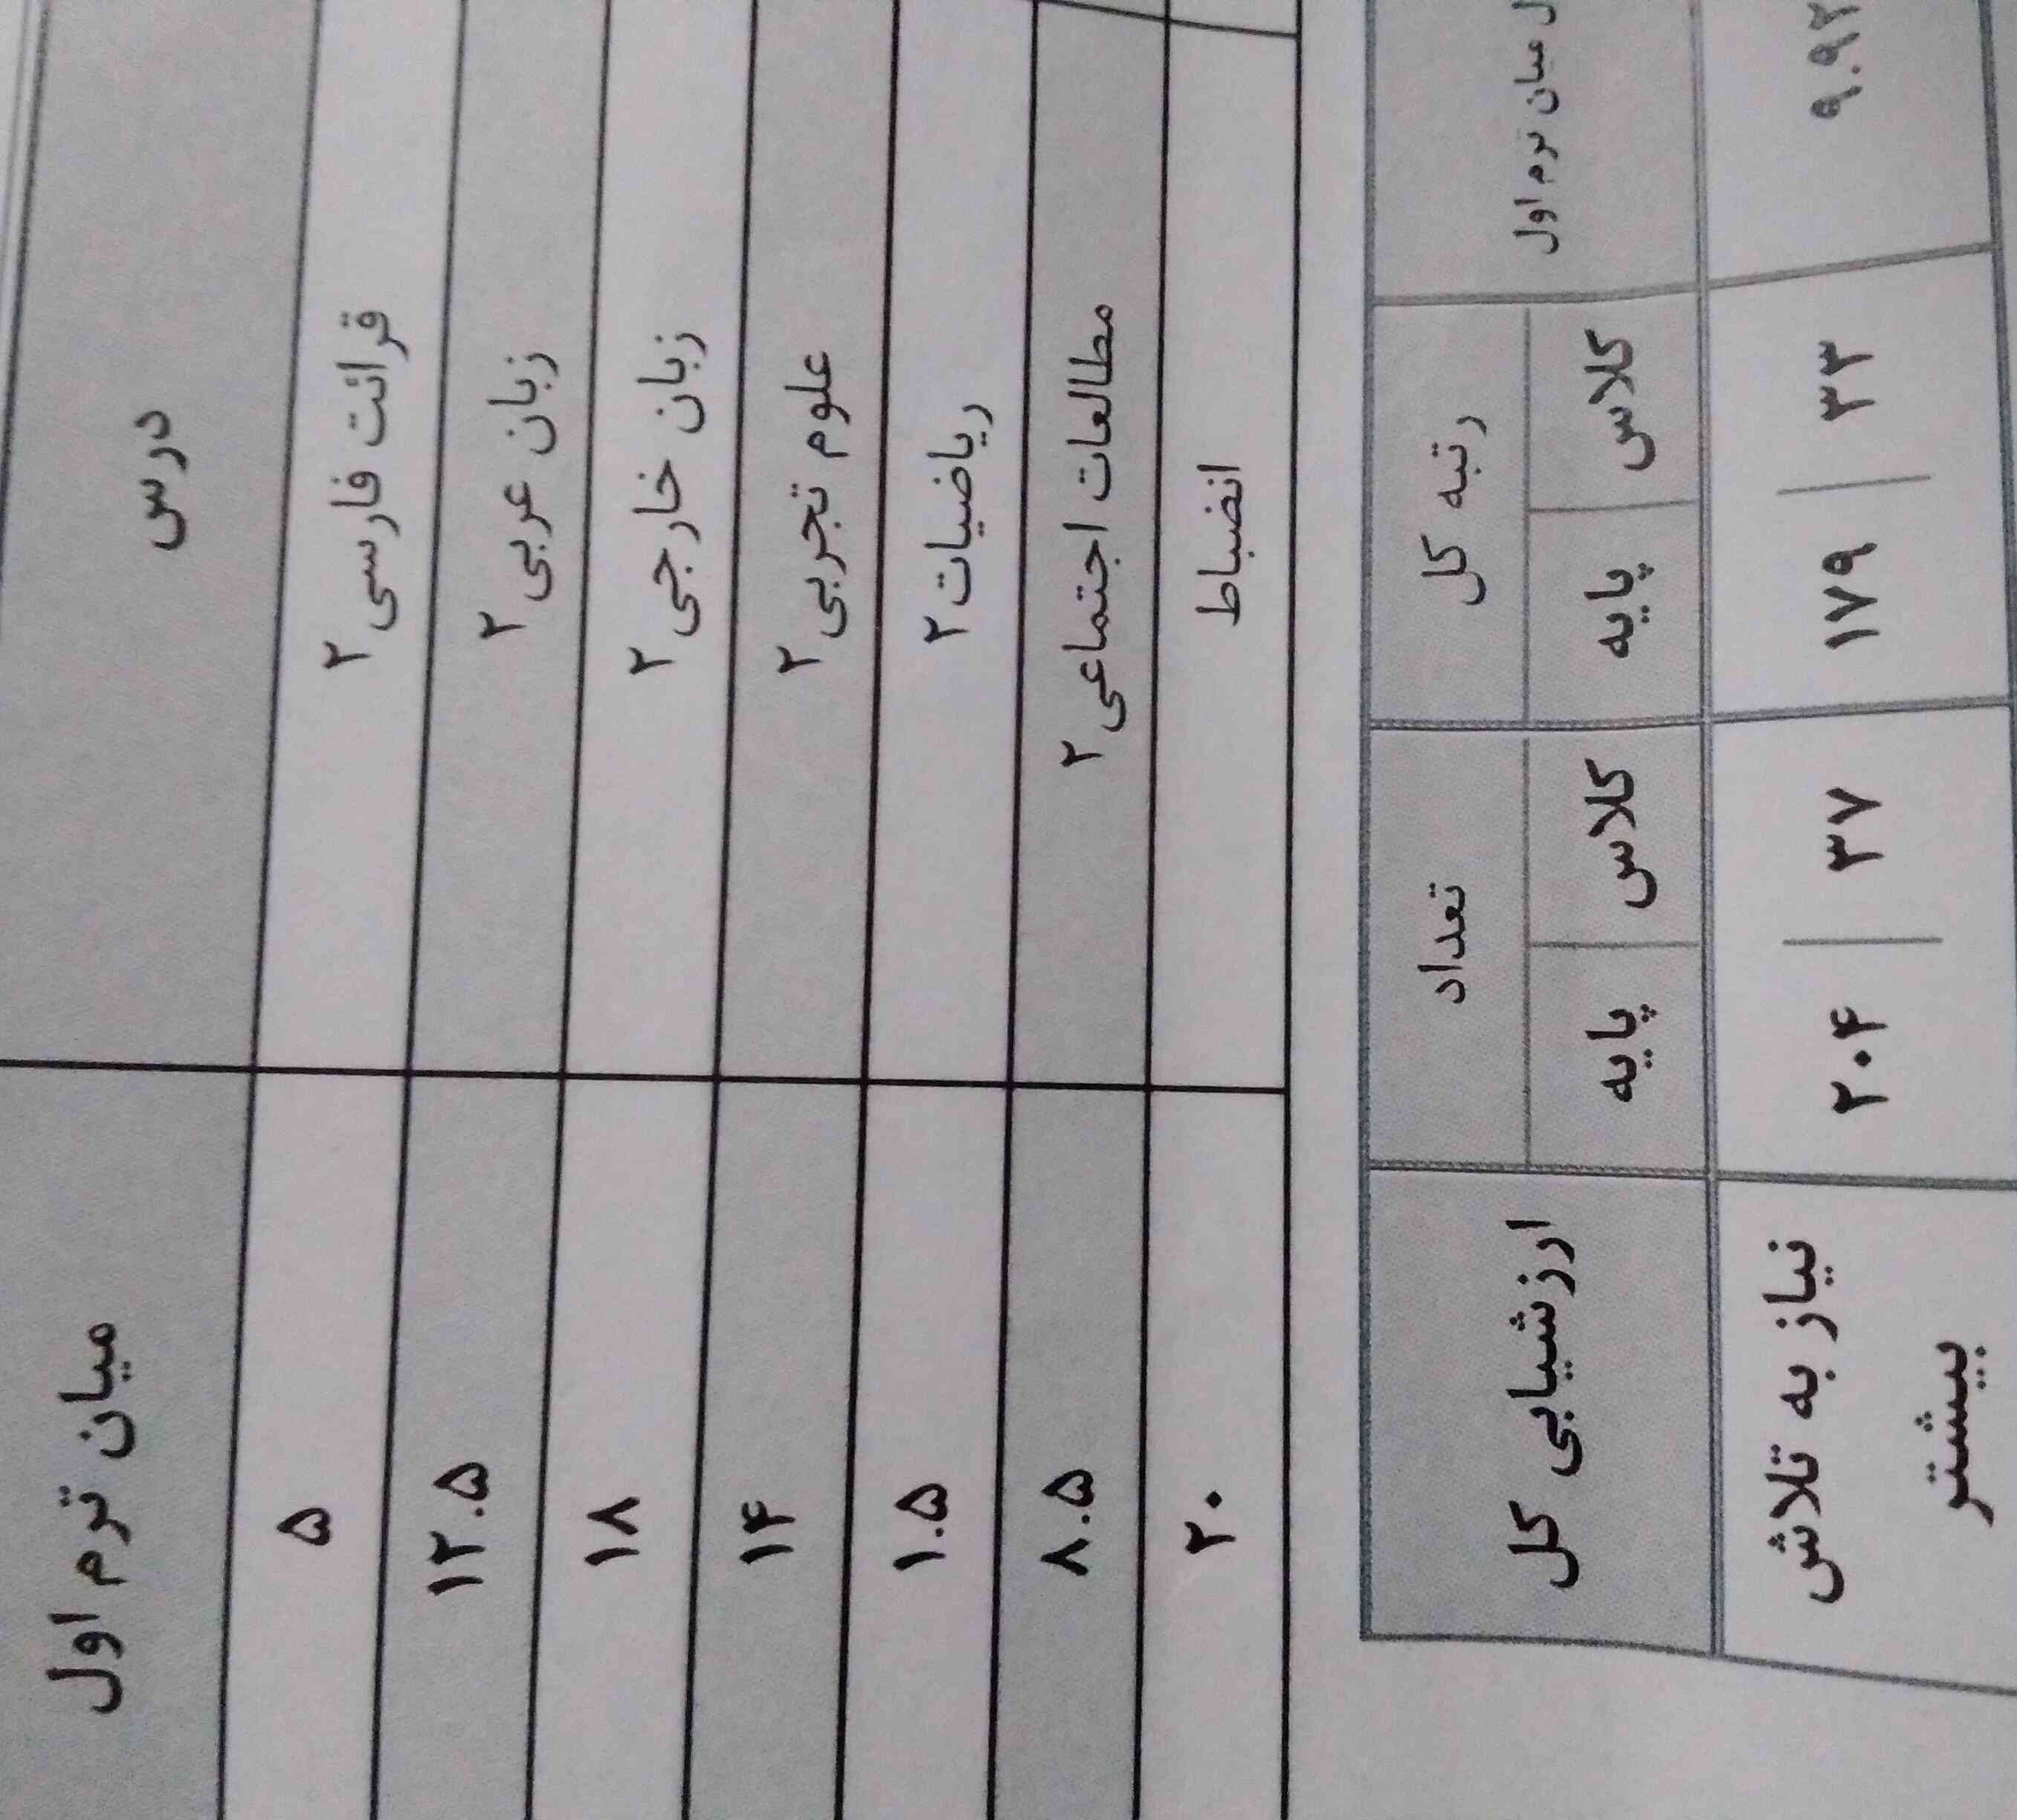 درس میان ترم اول
قرائت فارسی ۲ ۵
زبان عربی ۲ ۱۲.۵
زبان خارجی ۲ ۱۸
علوم تجربی ۲ ۱۴
ریاضیات ۲ ۱.۵
مطالعات اجتماعی ۲ ۸.۵
انضباط ۲۰
میان ترم اول رتبه کل تعداد ارزشیابی کل
کلاس پایه کلاس پایه
۹.۹۲ ۳۳ ۱۷۹ ۳۷ ۲۰۴ نیاز به تلاش
بیشتر